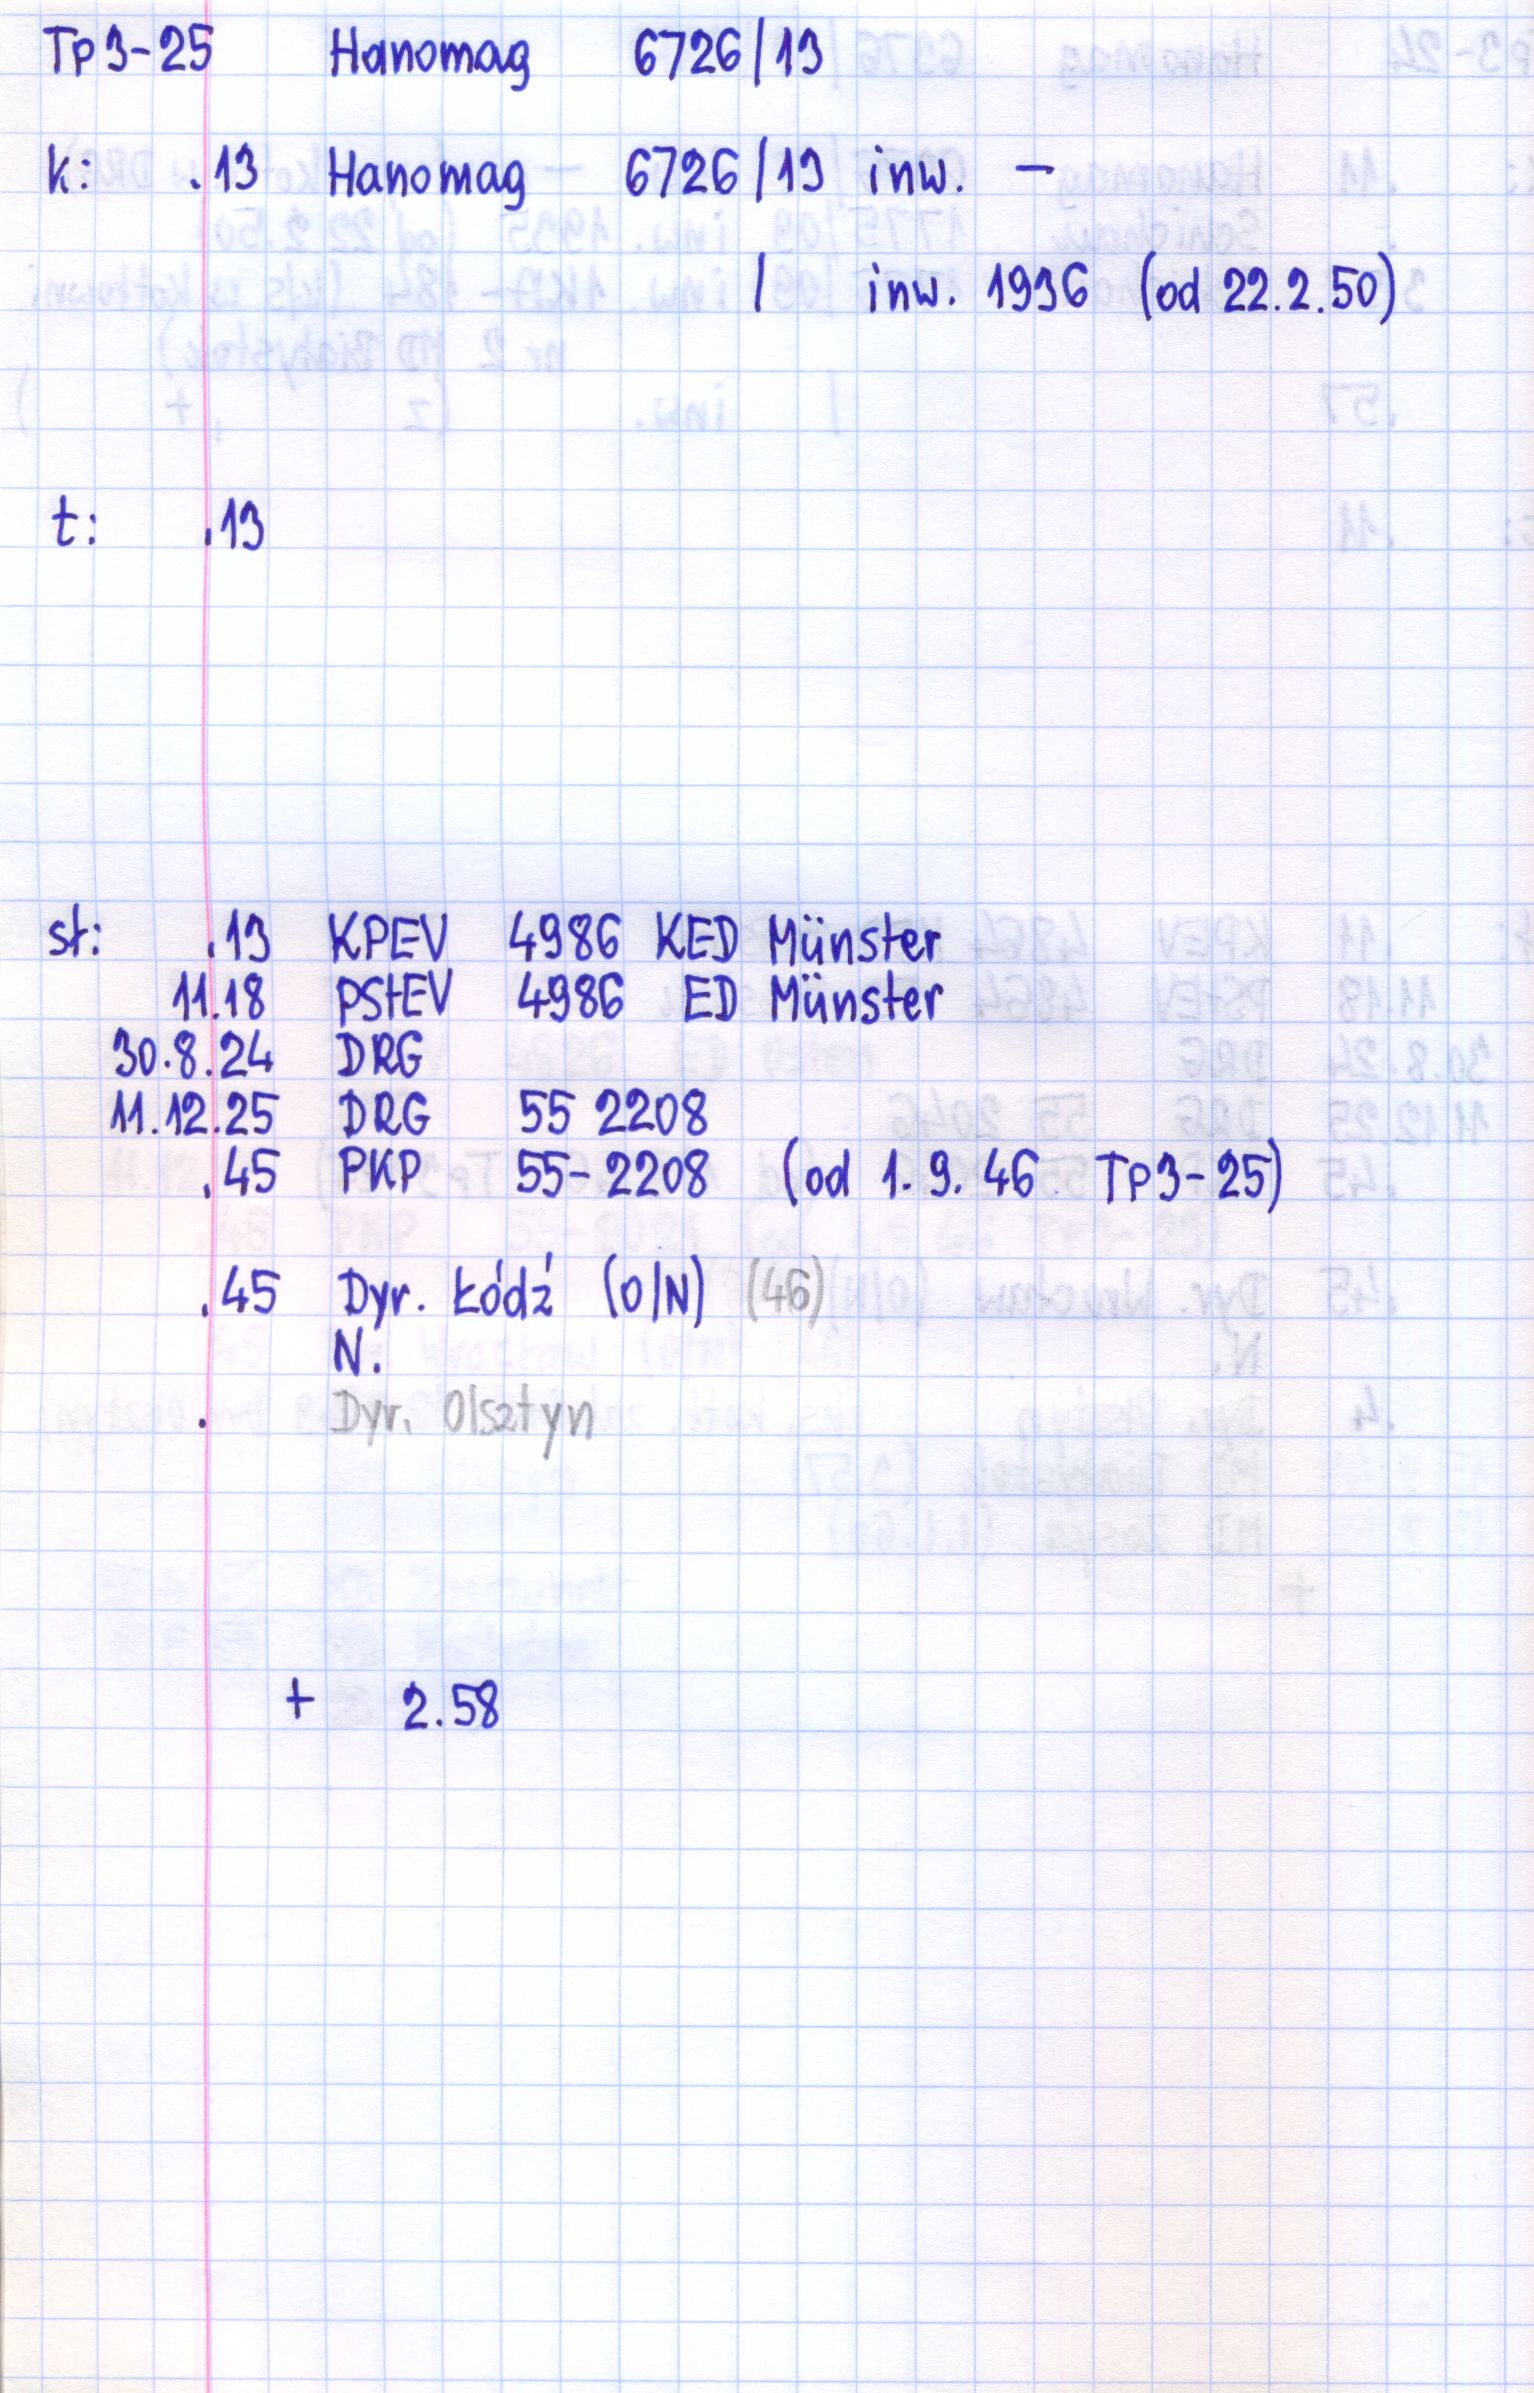 Tp3-25 Hanomag 6726/13
k: .13 Hanomag 6726/13 inw. –
/ inw. 1936 (od 22.2.50)
t: .13
st: .13 KPEV 4986 KED Münster
11.18 PStEV 4986 ED Münster
30.8.24 DRG
11.12.25 DRG 55 2208
.45 PKP 55-2208 (od 1.9.46 Tp3-25)
.45 Dyr. Łódź (O/N) (46)
N.
. Dyr. Olsztyn
+ 2.58